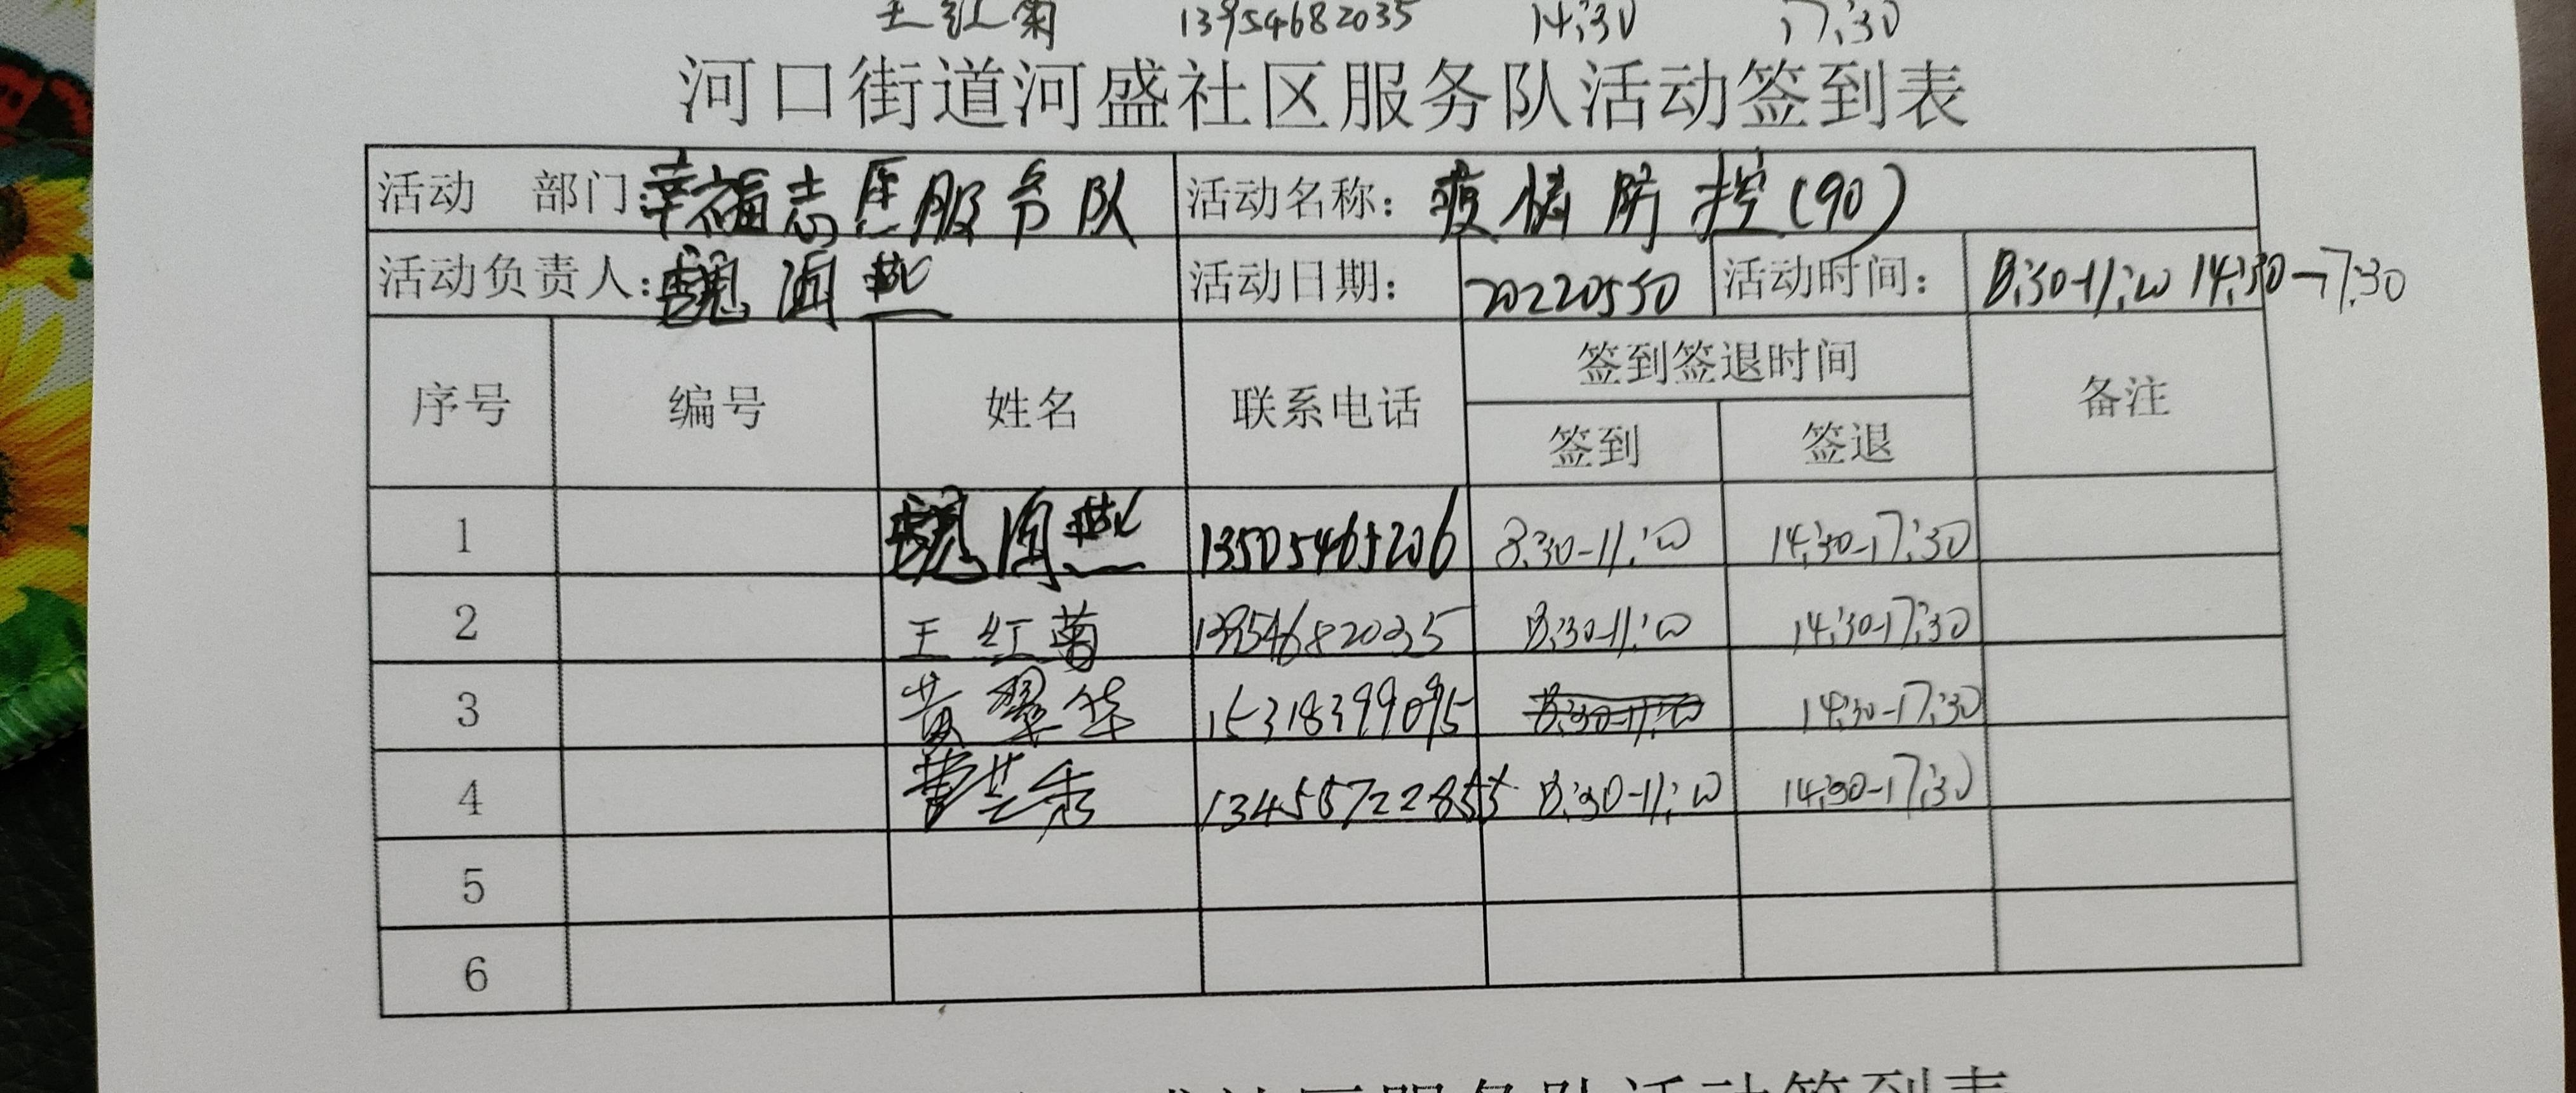 王红菊 13954682035 14:30 17:30
河口街道河盛社区服务队活动签到表
活动 部门:幸福志愿服务队 活动名称: 疫情防控(90)
活动负责人:魏海燕 活动日期: 20220530 活动时间: 8:30-11:00 14:30-17:30
序号 编号 姓名 联系电话 签到签退时间 备注
签到 签退
1 魏海燕 13505465206 8:30-11:00 14:30-17:30
2 王红菊 13954682035 8:30-11:00 14:30-17:30
3 黄翠华 15318399095 8:30-11:00 14:30-17:30
4 曹兰秀 13455722855 8:30-11:00 14:30-17:30
5
6
社区服务队活动签到表